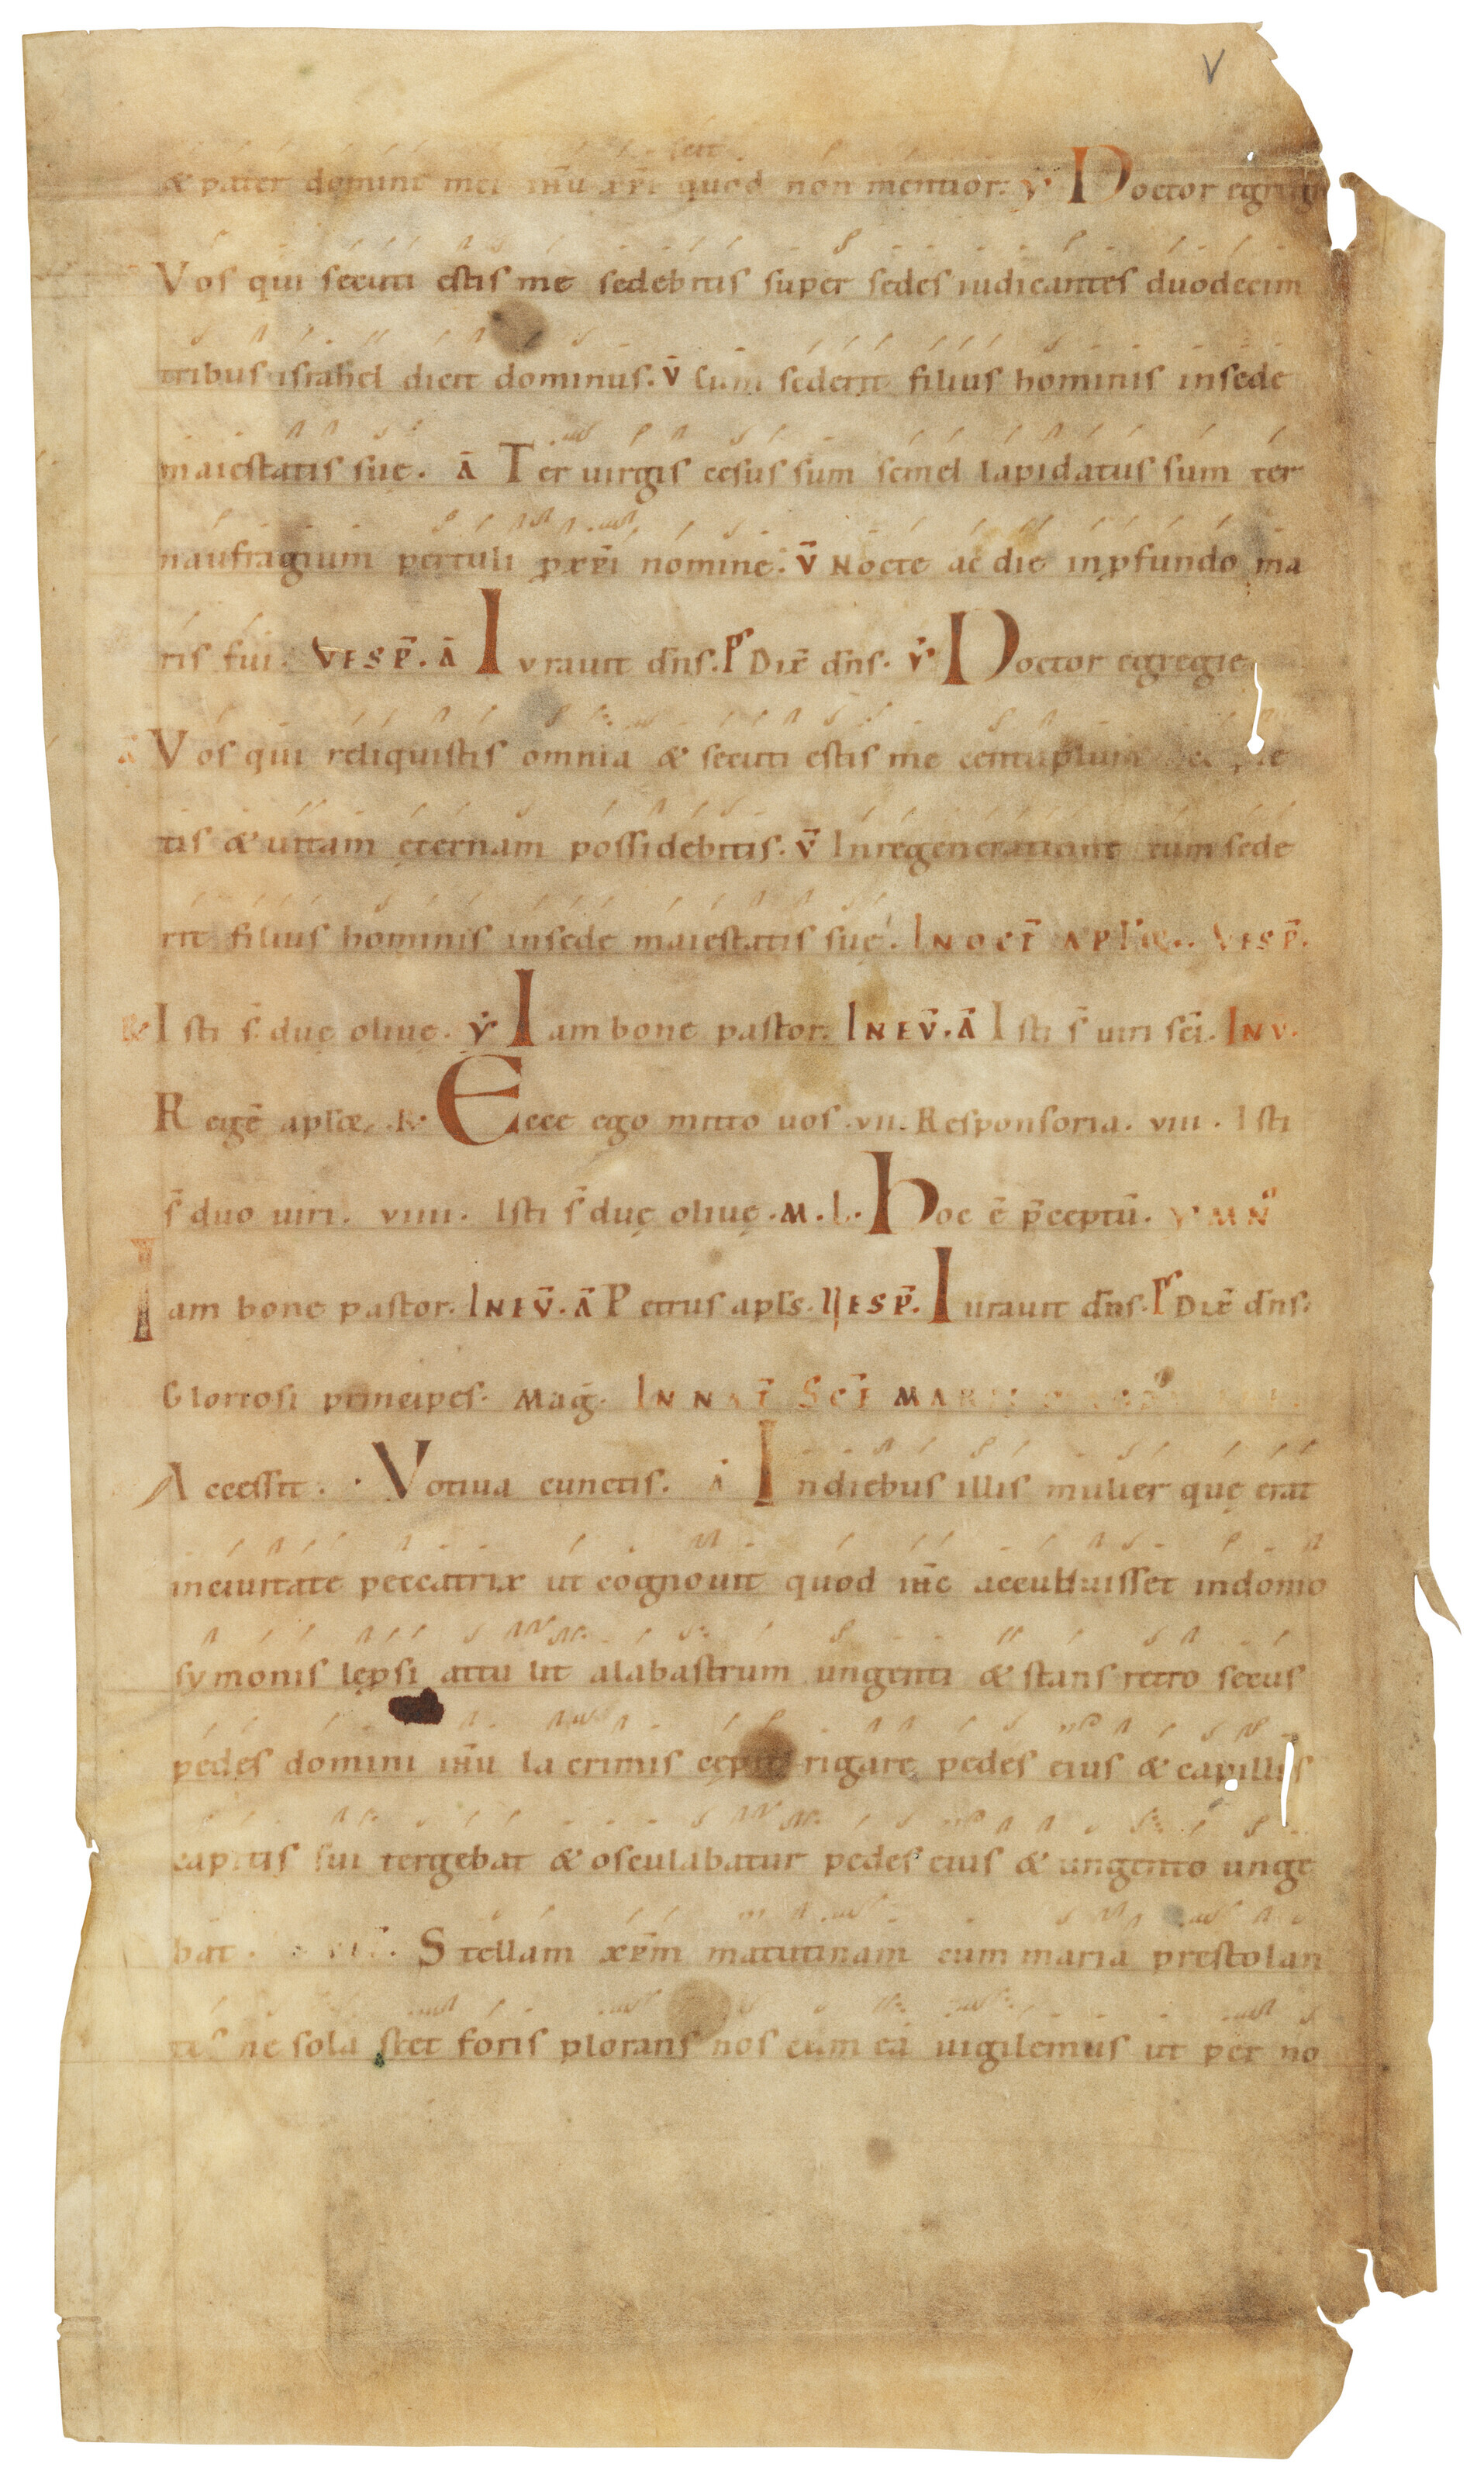 V
scit
& pater domini mei ihu xpi quod non mentior: y Doctor egregi
Vos qui secuti estis me sedebitis super sedes iudicantes duodecim
tribus israhel dicit dominus. v̄ Cum sederit filius hominis insede
maiestatis suę. ā Ter uirgis cesus sum semel lapidatus sum ter
naufragium pertuli p xp̄i nomine. v̄ Nocte ac die inpfundo ma
ris fui. VESP̄. ā Iurauit dn̄s. Ps Dix̄ dn̄s. y Doctor egregie
ā Vos qui reliquistis omnia & secuti estis me centuplum
tis & uitam ęternam possidebitis. v̄ Inregeneratione cum sede
rit filius hominis insede maiestatis suę. IN OCT̄ APLOR. VESP̄.
R Isti s̄ duę oliuę. y Iam bone pastor. IN EV̄. ā Isti s̄ uiri sc̄i. INV.
Regē aplōꝝ. R Ecce ego mitto uos .vii. Responsoria. viii. Isti
s̄ duo uiri. viiii. Isti s̄ duę oliuę. M. L. Hoc ē p̄ceptū. YMN
Iam bone pastor. IN EV̄. ā Petrus apl̄s. VESP̄. Iurauit dn̄s. Ps Dix̄ dn̄s.
Gloriosi principes. Maḡ. IN NAT̄ SCĒ MARIE
Accessit. Votiua cunctis. ā Indiebus illis mulier quę erat
inciuitate peccatrix ut cognouit quod ihc accubuisset indomo
symonis lępsi attulit alabastrum ungenti & stans retro secus
pedes domini ihu lacrimis cępit rigare pedes eius & capillis
capitis sui tergebat & osculabatur pedes eius & ungento unge
bat. Stellam xpm matutinam cum maria prestolan
tis ne sola stet foris plorans nos cum ea uigilemus ut per no